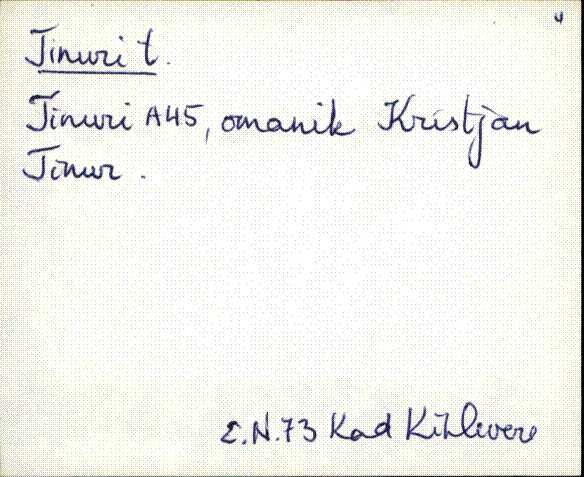 4
Tinuri t.
Tinuri A45, omanik Kristjan
Tinur.
E.N.73 Kad Kihlevere